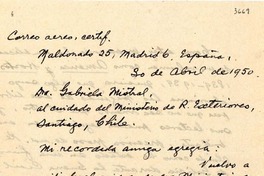 3669
Correo aereo, certif.
Maldonado 25, Madrid 6. España,
30 de Abril de 1950.
Da. Gabriela Mistral,
al cuidado del Ministerio de R. Exteriores,
Santiago, Chile.
Mi recordada amiga agregia:
Vuelvo a